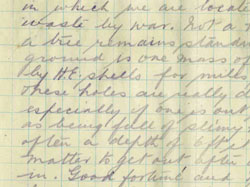 in which we are locate
waste by war. Not a
a tree remains standi
ground is one mass of
by H.E. shells for mill
These holes are really d
especially if one is out
as being full of slimy
often a depth of 6 ft
matter to get out after
in. Good fortune and